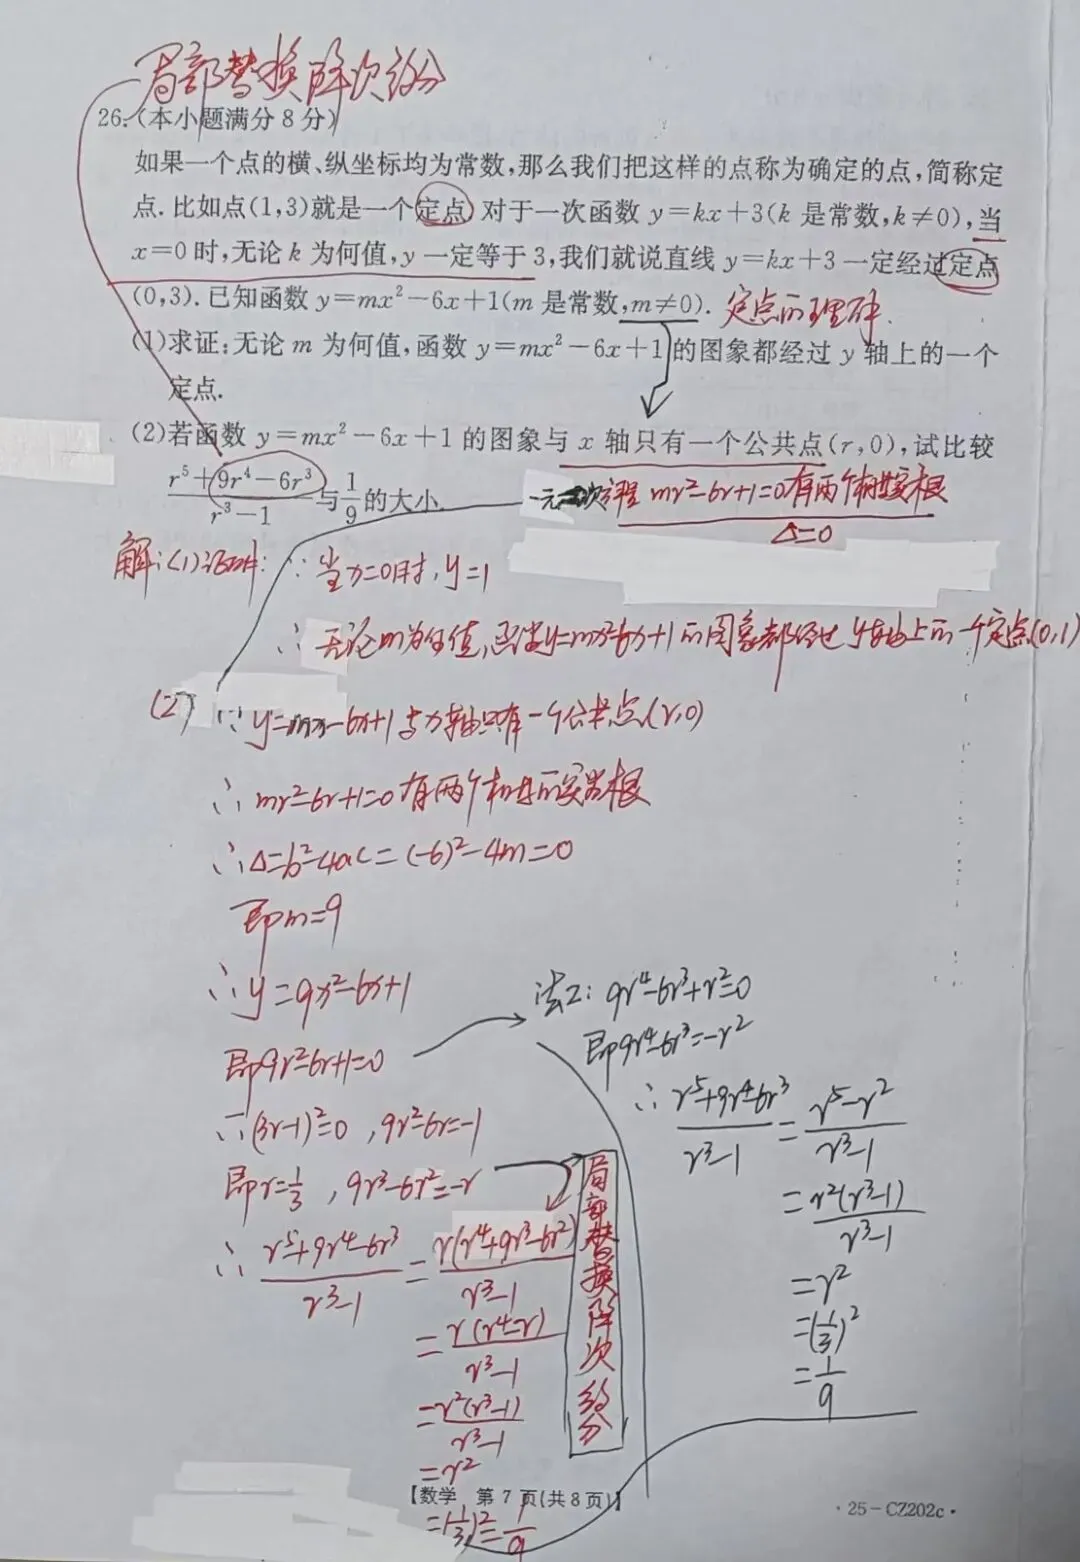 局部替换降次约分
26.(本小题满分8分)
如果一个点的横、纵坐标均为常数,那么我们把这样的点称为确定的点,简称定
点.比如点(1,3)就是一个定点.对于一次函数 y=kx+3(k 是常数,k≠0),当
x=0时,无论 k 为何值,y 一定等于3,我们就说直线 y=kx+3 一定经过定点
(0,3).已知函数 y=mx²-6x+1(m 是常数,m≠0). 定点的理解.
(1)求证:无论 m 为何值,函数 y=mx²-6x+1 的图象都经过 y 轴上的一个
定点.
(2)若函数 y=mx²-6x+1 的图象与 x 轴只有一个公共点(r,0),试比较
(r⁵+9r⁴-6r³)/(r³-1) 与 1/9 的大小.
一元二次方程 mr²-6r+1=0有两个相等实根
Δ=0
解:(1)证明: ∵当x=0时,y=1
∴无论m为何值,函数y=mx²-6x+1的图象都经过y轴上的一个定点(0,1)
(2) ∵y=mx²-6x+1与x轴只有一个公共点(r,0)
∴mr²-6r+1=0有两个相等的实数根
∴Δ=b²-4ac=(-6)²-4m=0
即m=9
∴y=9x²-6x+1
即9r²-6r+1=0
∴(3r-1)²=0,9r²-6r=-1
即r=1/3,9r³-6r²=-r
∴(r⁵+9r⁴-6r³)/(r³-1)=r(r⁴+9r³-6r²)/(r³-1)
=r(r⁴-r)/(r³-1)
=r²(r³-1)/(r³-1)
=r²
=(1/3)²=1/9
局部替换降次约分
法2:9r⁴-6r³+r²=0
即9r⁴-6r³=-r²
∴(r⁵+9r⁴-6r³)/(r³-1)=(r⁵-r²)/(r³-1)
=r²(r³-1)/(r³-1)
=r²
=(1/3)²
=1/9
【数学 第7页(共8页)】
·25-CZ202c·